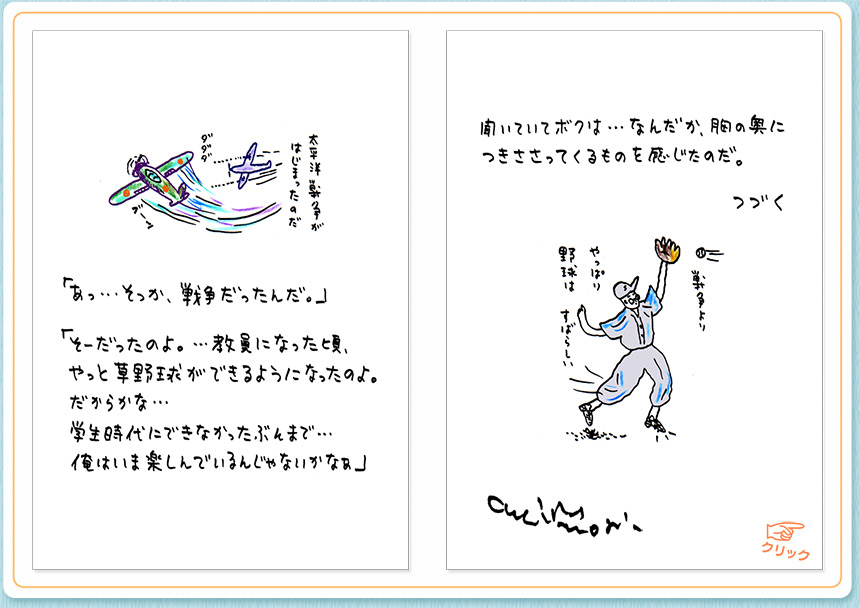 ダダダ
太平洋戦争が
はじまったのだ
ブーン
「あっ…そっか、戦争だったんだ。」
「そーだったのよ。…教員になった頃、
やっと草野球ができるようになったのよ。
だからかな…
学生時代にできなかったぶんまで…
俺はいま楽しんでいるんじゃないかなぁ」
聞いていてボクは…なんだか、胸の奥に
つきささってくるものを感じたのだ。
つづく
戦争より
やっぱり
野球は
すばらしい
クリック